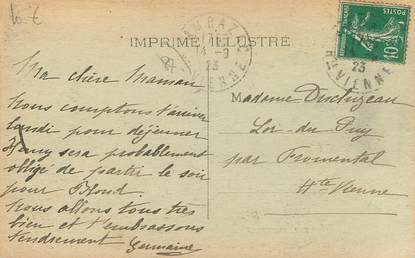 10 €
IMPRIMÉ ILLUSTRÉ
14 - 9
23
Ma chère Maman
Nous comptons t'arriver
lundi pour déjeuner
Henry sera probablement
obligé de partir le soir
pour Blond.
Nous allons tous très
bien et t'embrassons
tendrement Germaine
23
Hte VIENNE
10
Madame Ducluzeau
Lor-du Puy
par Fromental
Hte Vienne